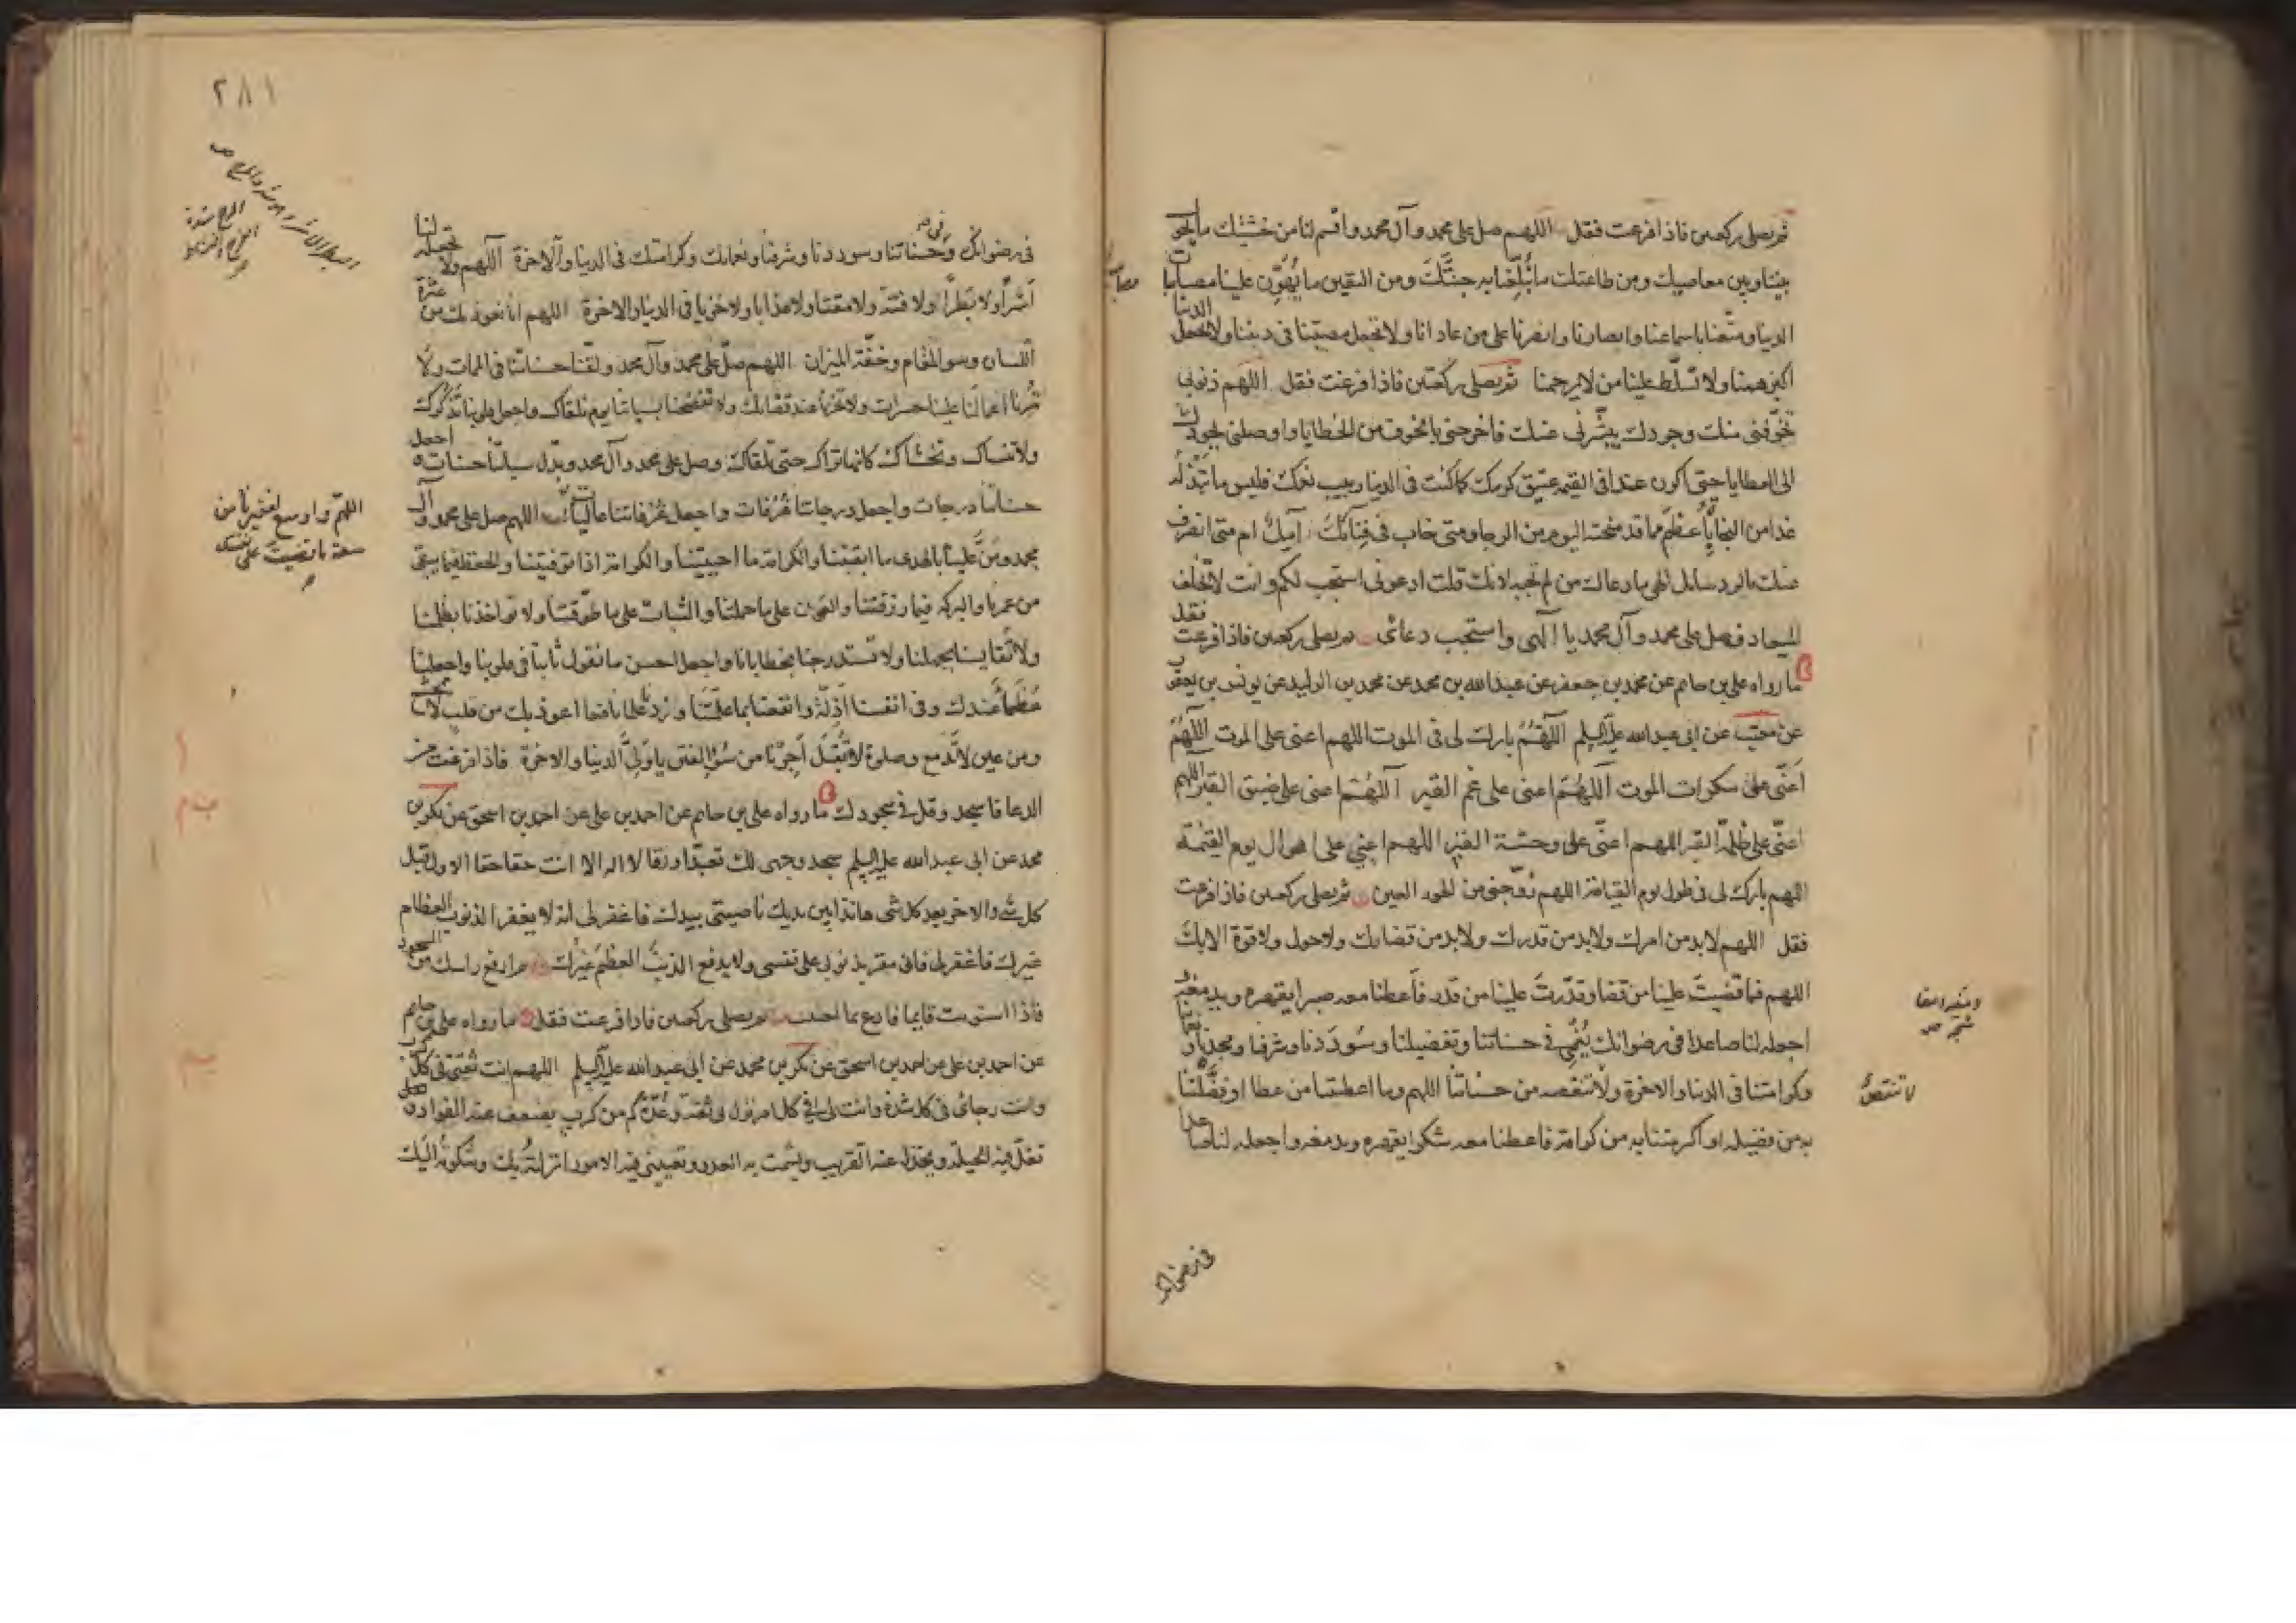 ثم يصلى ركعتين فاذا فرغت فقل اللهم صل على محمد وآل محمد واقسم لنا من خشيتك ما يحول
بيننا وبين معاصيك ومن طاعتك ما تُبلّغنا به جنتَك ومن اليقين ما يُهوّن علينا مصيبات
الدنيا ومتّعنا باسماعنا وابصارنا وانصرنا على من عادانا ولا تجعل مصيبتنا فى ديننا ولا تجعل الدنيا
اكبر همنا ولا تسلّط علينا من لا يرحمنا ثم يصلى ركعتين فاذا فرغت فقل اللهم ذنوبى
تخوّفنى منك وجودك يبشّرنى عنك فاخرجنى بالخوف من الخطايا واوصلنى بجودك
الى العطايا حتى اكون غدا فى القيمه عتيق كرمك كما كنت فى الدنيا ربيب نعمك فليس ما تبذله
غدا من النجاء باعظم مما قد منحته اليوم من الرجا ومتى خاب فى فنائك آمل ام متى انصرف
عنك بالرد سائل الهى ما دعاك من لم تجبه لانك قلت ادعونى استجب لكم وانت لا تخلف
الميعاد فصل على محمد وآل محمد يا الهى واستجب دعائى ثم يصلى ركعتين فاذا فرغت فقل
ما رواه على بن حاتم عن محمد بن جعفر عن عبد الله بن محمد عن محمد بن الوليد عن يونس بن يعقوب
عن معتب عن ابى عبد الله عليه السلم اللهم بارك لى فى الموت اللهم اعنى على الموت اللهم
اعنّى على سكرات الموت اللهم اعنى على غم القبر اللهم اعنى على ضيق القبر اللهم
اعنّى على ظلمة القبر اللهم اعنّى على وحشة القبر اللهم اعنى على اهوال يوم القيمة
اللهم بارك لى فى طول يوم القيامة اللهم زوّجنى من الحور العين ثم يصلى ركعتين فاذا فرغت
فقل اللهم لا بد من امرك ولا بد من قدرك ولا بد من قضائك ولا حول ولا قوة الا بك
اللهم فما قضيت علينا من قضا وقدّرت علينا من قدر فاعطنا معه صبرا يقهره ويدمغه
اجعله لنا صاعدا فى رضوانك يُنمى فى حسناتنا وتفضيلنا وسُوددنا وشرفنا ومجدنا ونعمائنا
وكرامتنا فى الدنيا والاخرة ولا تنقصه من حسناتنا اللهم وما اعطيتنا من عطا او فضّلتنا
به من فضيله او اكرمتنا به من كرامة فاعطنا معه شكرا يقهره ويدمغه واجعله لنا صاعدا
لا تنتقص
فى رضوانك
٢٨١
فى رضوانك وفى حسناتنا وسوددنا وشرفنا ونعمائك وكرامتك فى الدنيا والآخرة اللهم ولا تجعله لنا
اشراً ولا بطراً ولا فتنة ولا مقتا ولا عذابا ولا خزيا فى الدنيا والاخرة اللهم انا نعوذ بك من عثرة
اللسان وسو المقام وخفّة الميزان اللهم صلّ على محمد وآل محمد ولقّنا حسناتنا فى الممات ولا
تُرنا اعمالنا علينا حسرات ولا تخزنا عند قضائك ولا تفضحنا بسيّاتنا يوم نلقاك واجعل قلوبنا تذكرك
ولا تنساك وتخشاك كانها تراك حتى تلقاك وصل على محمد وآل محمد وبدّل سيّاتنا حسنات واجعل
حسناتنا درجات واجعل درجاتنا غُرُفات واجعل غُرُفاتنا عاليات اللهم صل على محمد وآل
محمد ومنّ علينا بالهدى ما ابقيتنا والكرامة ما احييتنا والكرامة اذا توفيتنا والحفظ فيما يبقى
من عمرنا والبركه فيما رزقتنا والعون على ما حملتنا والثبات على ما طوّقتنا ولا تواخذنا بظلمنا
ولا تقايسنا بجهلنا ولا تستدرجنا بخطايانا واجعل احسن ما نقول ثابتاً فى قلوبنا واجعلنا
عُظماً عندك وفى انفسنا اذلّة وانفعنا بما علّمتنا وزدنا علما نافعا اعوذ بك من قلب لا يخشع
ومن عين لا تدمع وصلوة لا تقبل اجرنا من سُوالفتن يا ولىّ الدنيا والاخرة فاذا فرغت من
الدعا فاسجد وقل فى سجودك ما رواه على بن حاتم عن احمد بن على عن احمد بن اسحق عن بكر بن
محمد عن ابى عبد الله عليه السلم سجد وجهى لك تعبّدا ورقا لا اله الا انت حقا حقا الاول قبل
كل شى والاخر بعد كل شى هانذا بين يديك ناصيتى بيدك فاغفر لى انه لا يغفر الذنوب العظام
غيرك فاغفر لى فانى مقر بذنوبى على نفسى ولا يدفع الذنب العظيم غيرك ثم ارفع راسك من السجود
فاذا استويت قايما فادع بما احببت ثم يصلى ركعتين فاذا فرغت فقل ما رواه على بن حاتم
عن احمد بن على عن احمد بن اسحق عن بكر بن محمد عن ابى عبد الله عليه السلم اللهم انت ثقتى فى كل كرب
وانت رجائى فى كل شدة وانت لى فى كل امر نزل بى ثقة وعُدّة كم من كرب يضعف عنه الفواد
تقلّ فيه الحيلة ويخذل عنه القريب ويشمت به العدو وتعيينى فيه الامور انزلته بك وشكوته اليك
اللهم واوسع لفقيرنا من
سعة ما قضيت على نفسك